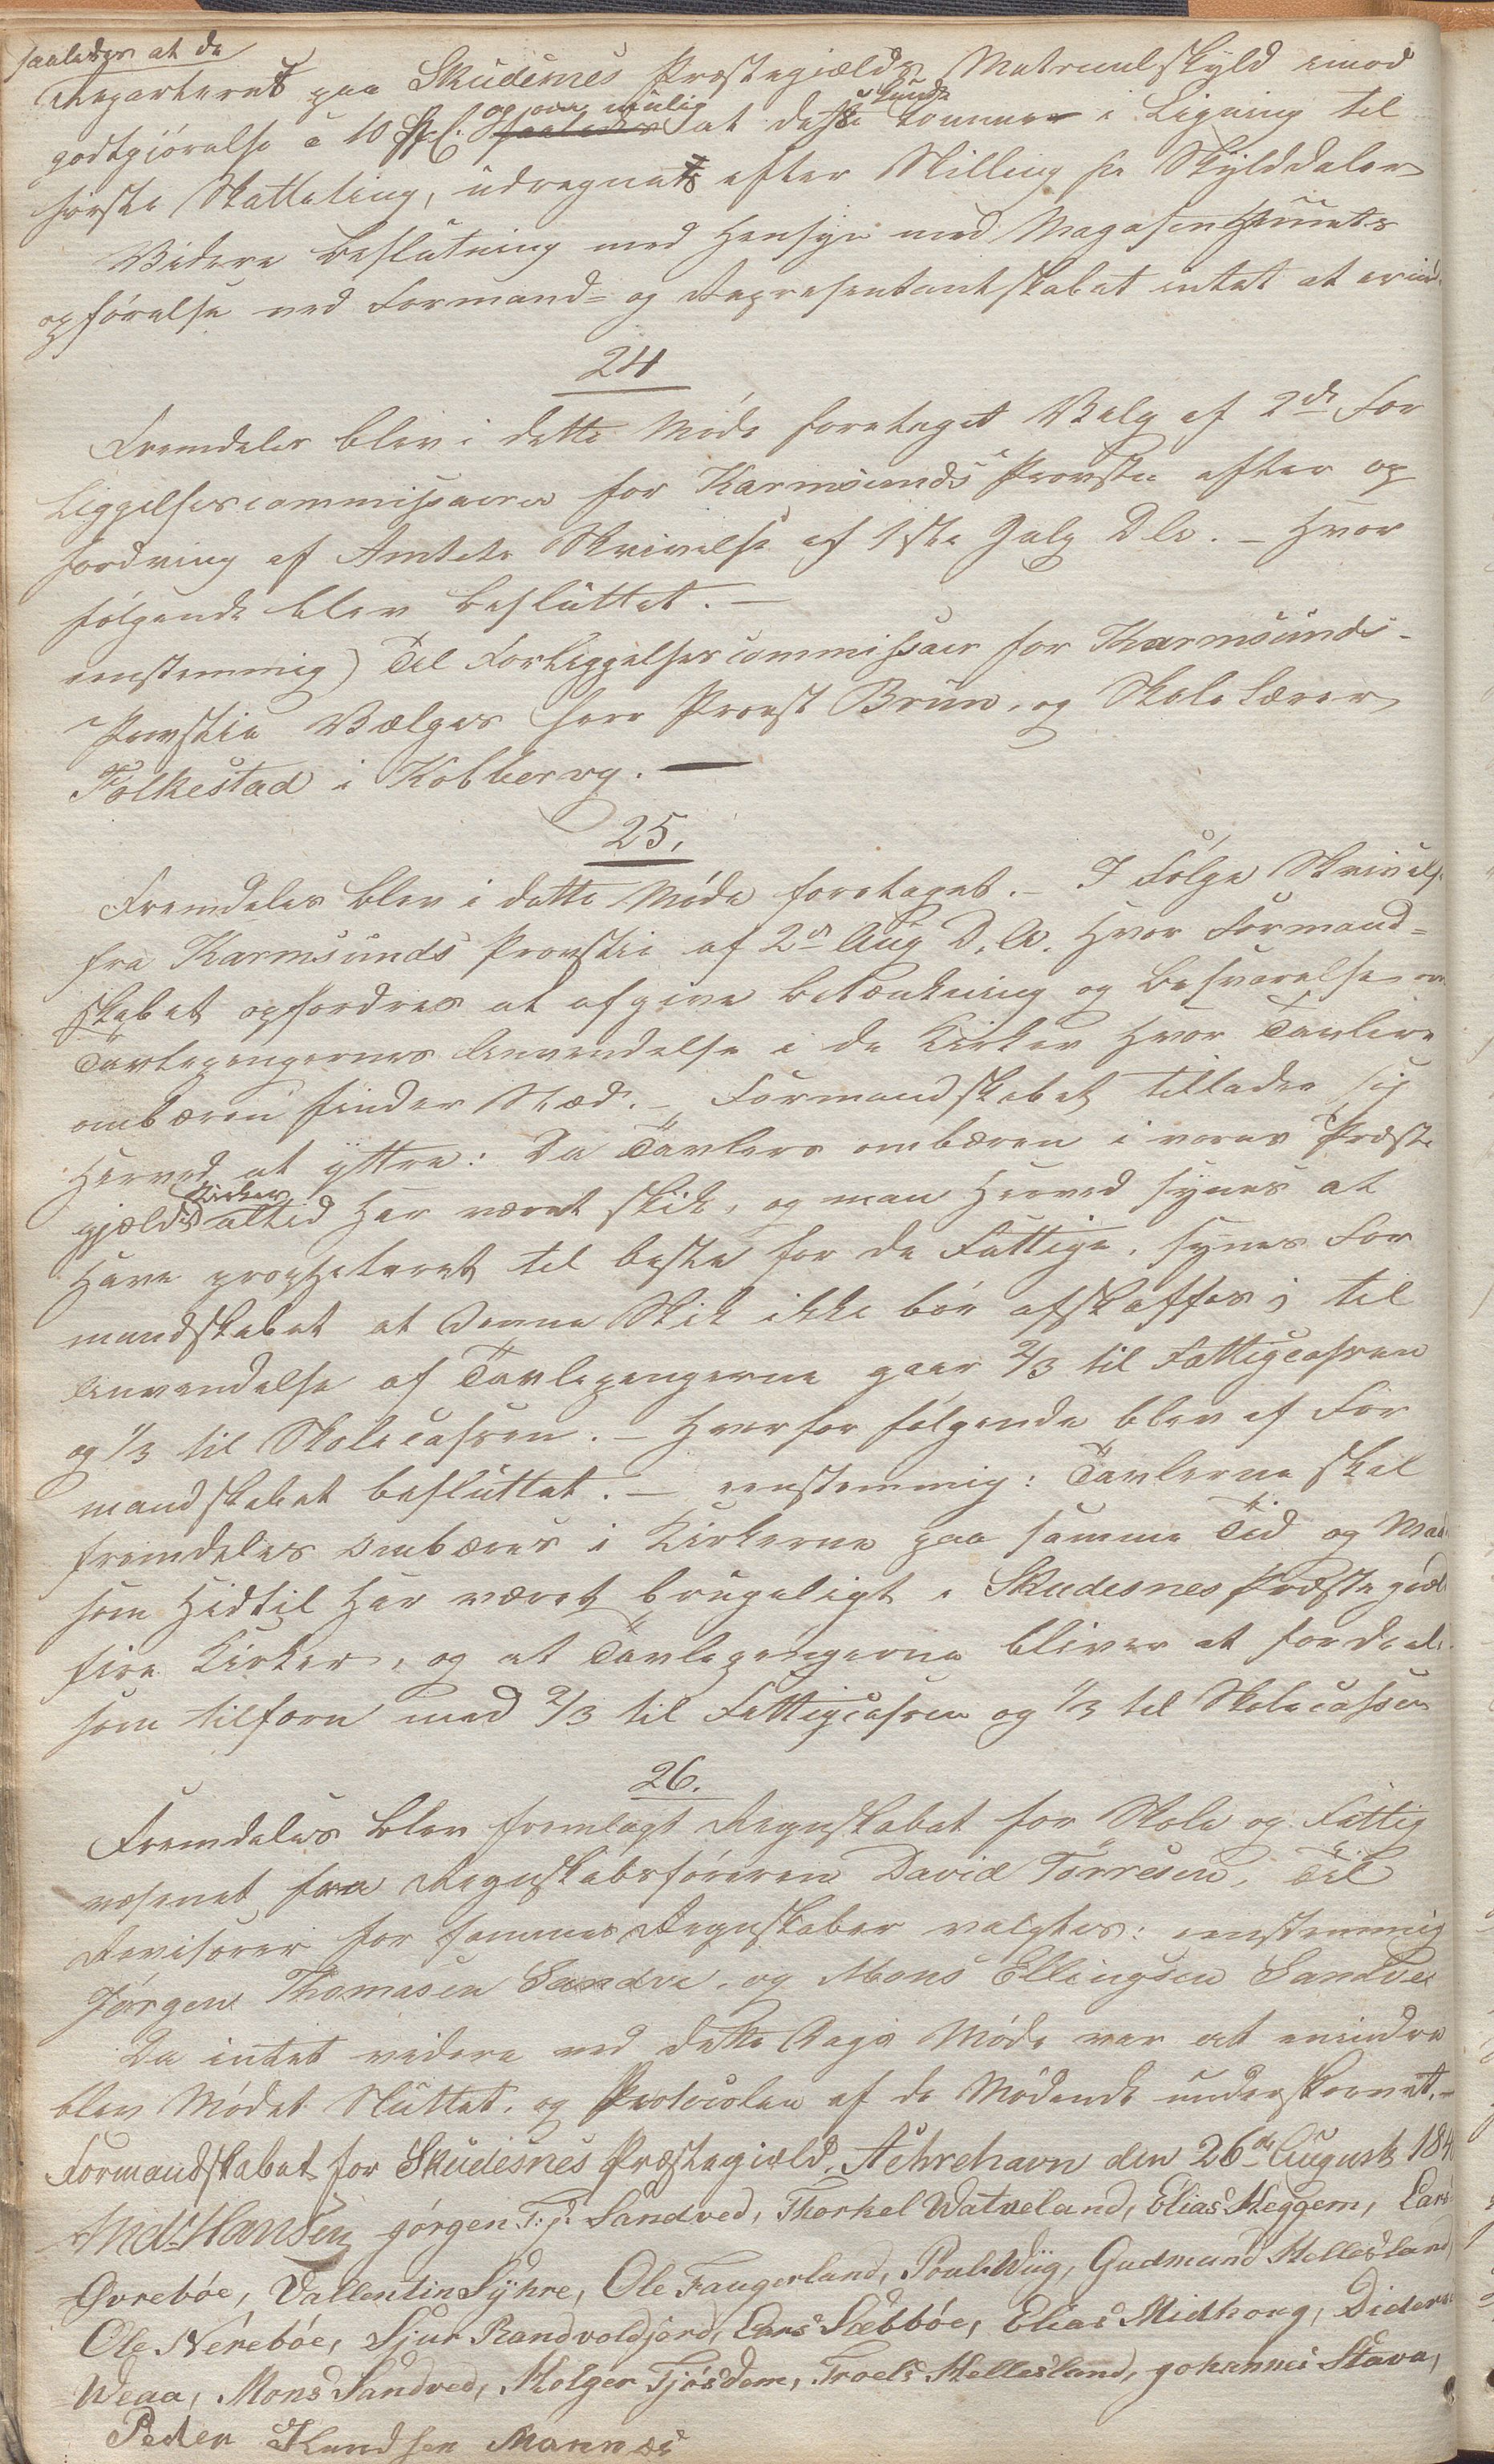 saaledes at de
Reparteret paa Skudesnes Præstegjælds Matreculskyld imod
godtgjørelse a 10 Spd. og om mulig saaledes at disse kunde komme i Ligning til
første Skatteting, udregnet efter Skilling pr Skylddaler
Videre beslutning med Hensyn med Magasin Huusets
opførelse ved Formand- og Repræsentantskabet intet at erind.
24
Fremdeles blev i dette Møde foretaget Valg af 2de For
liggelsescommissairer for Karmsunds Provstie efter op
fordring af Amtets Skrivelse af 1ste July D. A. – Hvor
følgende blev besluttet. –
eenstemmig) Til Forliggelsescommissair for Karmsunds-
Provstie Vælges Herr Provst Brun, og Skolelærer
Folkestad i Kobbervig. –
25.
Fremdeles blev i dette Møde foretaget. – I Følge Skrivelse
fra Karmsunds Provstie af 2de Aug D. A. Hvor Formand-
skabet opfordres at afgive betænkning og besvarelse om
Tavlepengernes Anvendelse i de Kirker Hvor Tavlers
ombæren finder Sted. – Formandskabet tillader sig
Herved at yttre: Da Tavlers ombæren i vores Præste
gjælds Kirker altid Har været skik, og man Herved synes at
Have propheteret til beste for de Fattige, synes For
mandskabet at denne Skik ikke bør afskaffes; til
Anvendelse af Tavlepengerne gaar 2/3 til Fattigcassen
og 1/3 til Skolecassen. – Hvorfor følgende blev af For
mandskabet besluttet. – eenstemmig: Tavlerne skal
fremdeles ombæres i Kirkerne paa samme Tid og Maade
som Hidtil Har været brugeligt i Skudesnes Præstegjælds
fire Kirker, og at Tavlepengerne bliver at fordeele
som tilforn med 2/3 til Fattigcassen og 1/3 til Skolecassen
26.
Fremdeles blev fremlagt Regnskabet for Skole og Fattig
væsenet fra Regnskabsføreren David Torresen, Til
Revisorer for sammes Regnskaber valgtes: eenstemmig
Jørgen Thomasen Sandve, og Mons Ellingsen Sandve
Da intet videre ved dette Dags Møde var at erindre
blev Mødet Sluttet, og Protocolen af de Mødende underskrevet. –
Formandskabet for Skudesnes Præstegjæld, Aehrehavn den 26de August 184
Andr Hansen jørgen T:s. Sandved, Thorkel Watneland, Elias Heggem, Lars
Øvrebøe, Vallentin Syhre, Ole Faugerland, Poul Wiig, Gudmund Hellesland
Ole Nerebøe, Sjur Randvoldjord, Lars Sæbbøe, Elias Midhoug, Diderik
Weaa, Mons Sandved, Holger Tjøsdem, Troels Hellesland, johannes Stava,
Peder Knudsen Mannæs